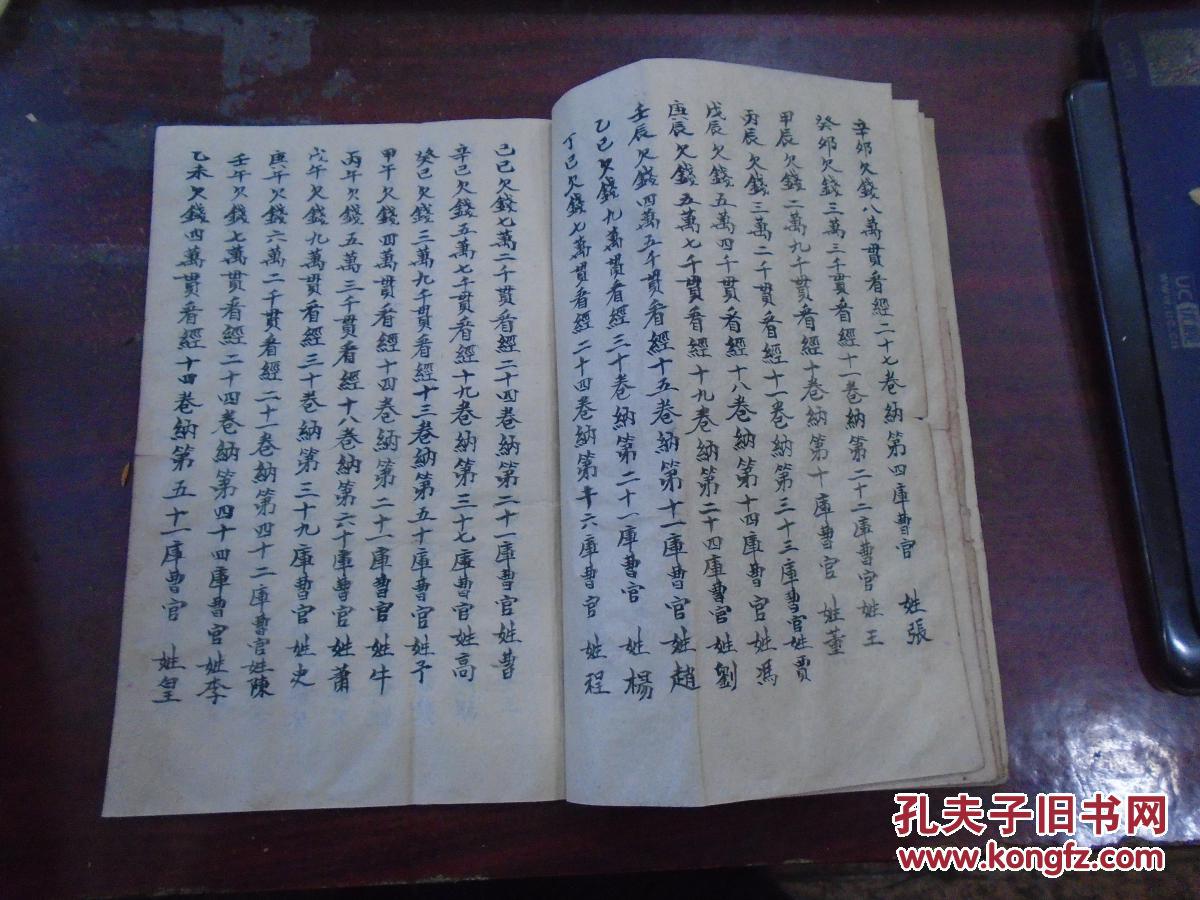 辛卯欠錢八萬貫看經二十七卷納第四庫曹官 姓張
癸卯欠錢三萬三千貫看經十一卷納第二十二庫曹官姓王
甲辰欠錢二萬九千貫看經十卷納第十庫曹官 姓董
丙辰欠錢三萬二千貫看經十一卷納第三十三庫曹官姓賈
戊辰欠錢五萬四千貫看經十八卷納第十四庫曹官姓馮
庚辰欠錢五萬七千貫看經十九卷納第二十四庫曹官姓劉
壬辰欠錢四萬五千貫看經十五卷納第十一庫曹官姓趙
乙巳欠錢九萬貫看經三十卷納第二十一庫曹官 姓楊
丁巳欠錢七萬貫看經二十四卷納第十六庫曹官 姓程
己巳欠錢七萬二千貫看經二十四卷納第二十一庫曹官姓曹
辛巳欠錢五萬七千貫看經十九卷納第三十七庫曹官姓高
癸巳欠錢三萬九千貫看經十三卷納第五十庫曹官姓
甲午欠錢四萬貫看經十四卷納第二十一庫曹官 姓牛
丙午欠錢五萬三千貫看經十八卷納第六十庫曹官姓蕭
戊午欠錢九萬貫看經三十卷納第三十九庫曹官 姓史
庚午欠錢六萬二千貫看經二十一卷納第四十二庫曹官姓陳
壬午欠錢七萬貫看經二十四卷納第四十四庫曹官姓李
乙未欠錢四萬貫看經十四卷納第五十一庫曹官 姓皇
孔夫子旧书网
www.kongfz.com